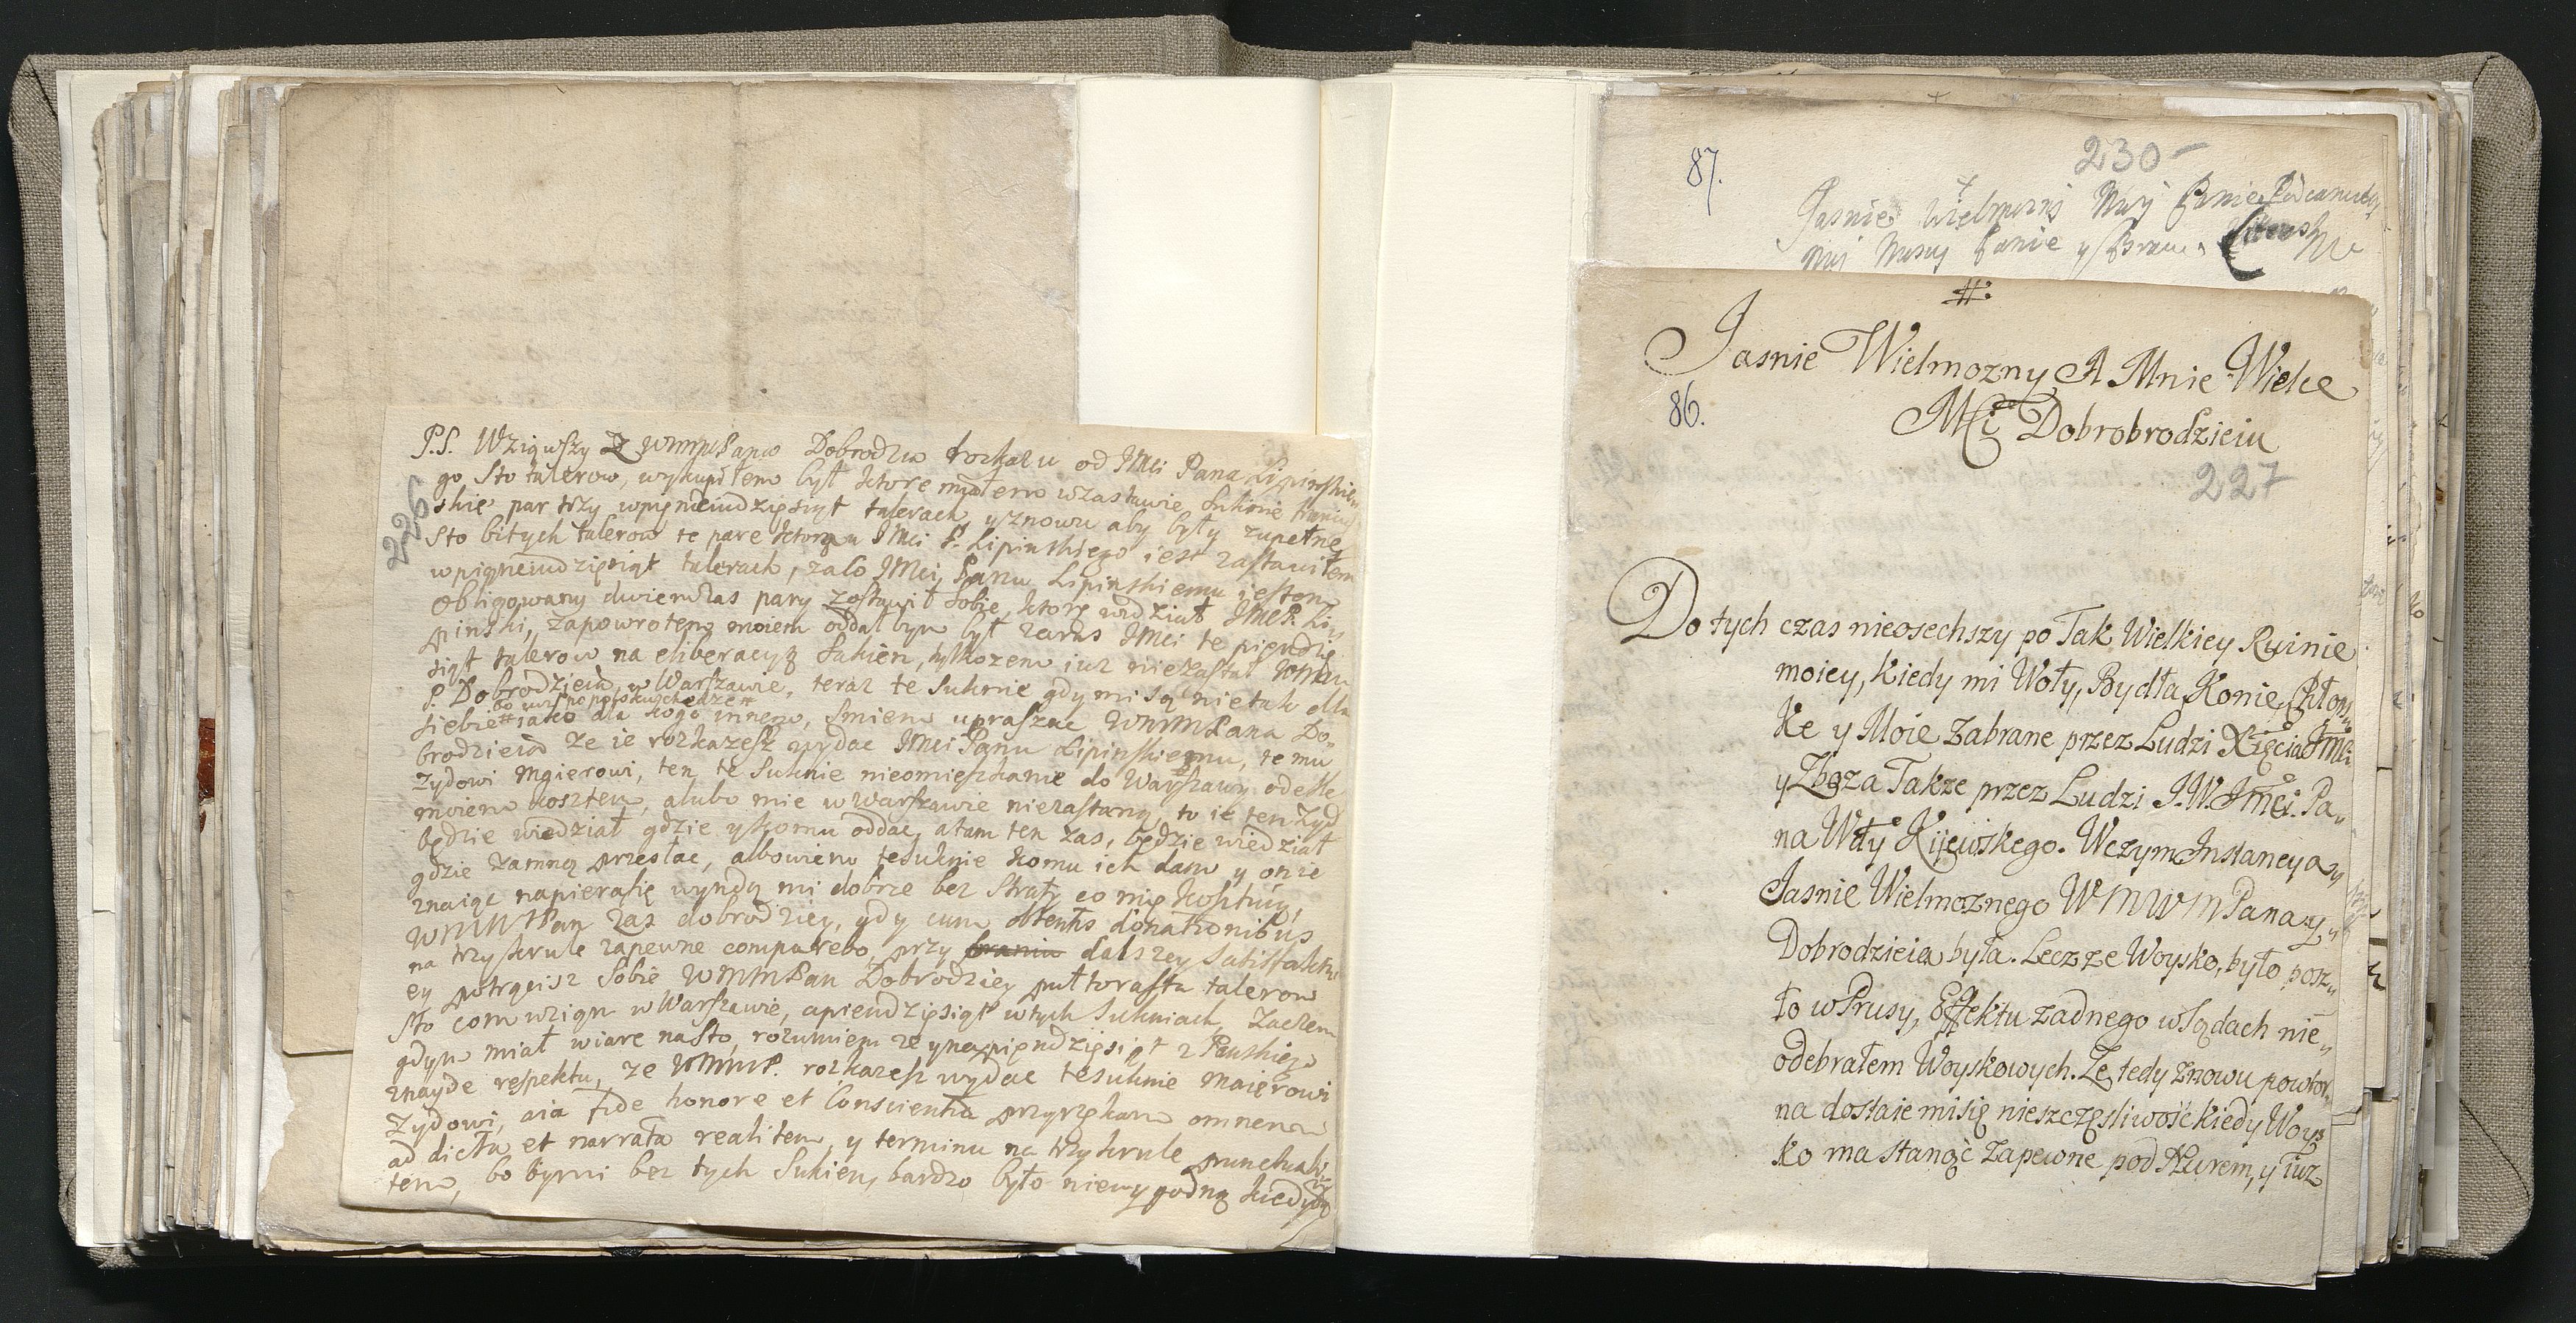 226
P.S. Wziąwszy Z WMMPana Dobrodzia rozkazu od JMci Pana Lipinskie
go Sto talerow, wykupiłem był ktore miałem wzastawie Suknie
skie par trzy wpięnciudziesiąt talerach, yznowu aby były zupełne
Sto bitych talerow te pare ktora u JMci P. Lipinskiego iest zastawiłem
wpięnciudziesiąt talerach, zaco JMci Panu Lipinskiemu iestem
Obligowany dwie zas pary zostawił sobie, ktorę widział JMcP. Li
pinski, zapowrotem moiem oddał bym był zaraz JMci te piendzie
siąt talerow na eliberacyą Sukien, tylkozem iuz niezastał WMM
P. Dobrodzieia w Warszawie, teraz te Suknie gdy mi są nie tak dla
siebie # iako dla kogo innego, Smiem upraszac WMMPana Do-
brodzieia ze ie rozkazesz wydac JMci Panu Lipinskiemu, temu
Zydowi Mgierowi, ten te Suknie nieomieszkanie do Warszawy odesle
moiem kosztem, alubo mie w Warszawie niezastaną, to ie ten Zyd
będzie wiedział gdzie ykomu oddac, atam ten zas, będzie wiedział
gdzie zamną przesłac, albowiem te suknie komu ich dam y on ie
znaiąc napierasię wyndą mi dobrze bez Straty co mię kosztuią,
WMMPan zas dobrodziey, gdy cum obtentis donationibus
na trzy krule zapewne comparebo, przy dalszey Satisfakcy
ey potrącisz Sobie WMMPan Dobrodziey pułtorasta talerow
Sto com wziąn w Warszawie, apiendziesiąt wtych Sukniach, Zaczem
gdym miał wiare nasto, rozumiem ze yna piendziesiąt z Panskiego
znayde respektu, ze WMMP. rozkazesz wydac te suknie Maierowi
Zydowi, aia fide honore et Conscientia przyrzekam omnem
ad dicta et narrata realitem, y terminu na trzy krule punctuali
tem, bo bymi bez tych Sukien, bardzo było niewygodną kiedy
87.
230-
Jasnie Wielmozny Mnij Panie
Mnij Panie y
#.
Jasnie Wielmozny A Mnie Wielce
86.
Mci Dobrobrodzieiu
227
Do tych czas nieosechszy po Tak Wielkiey Ruinie
moiey, kiedy mi Woły, Bydła, Konie,
ke y Moie Zabrane przez Ludzi Xięcia JMci
y Zboza Takze przez Ludzi J.W. JMci. Pa„
na Wdy Kijewskego. Wczym Instancya
Jasnie Wielmoznego WMWMPana
Dobrodzieia była. Lecz ze Woysko, było posz„
ło w Prusy, Effektu zadnego w Sądach nie„
odebrałem Woyskowych. Ze tedy znowu powtor„
na dostaie misię nieszczęsliwość kiedy Woys
ko ma stanąć Zapewne pod Nurem, y Iuz